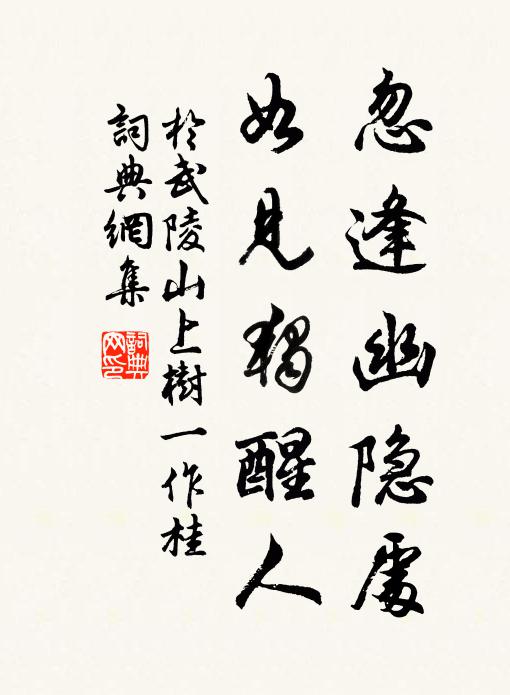 忽逢幽隐處
如見獨醒人
於武陵山上樹一作桂
詞典網集
詞典
网印